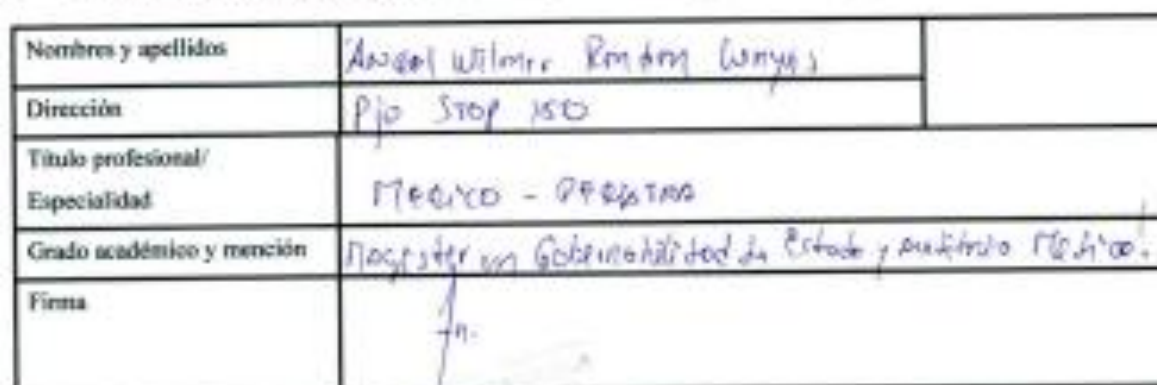 Nombres y apellidos Angel Wilmer Rondon
Dirección Pje STOP 150
Título profesional/
Especialidad MEDICO - PEDIATRA
Grado académico y mención Magester en Gobernabilidad de Estado y auditoria Medica.
Firma